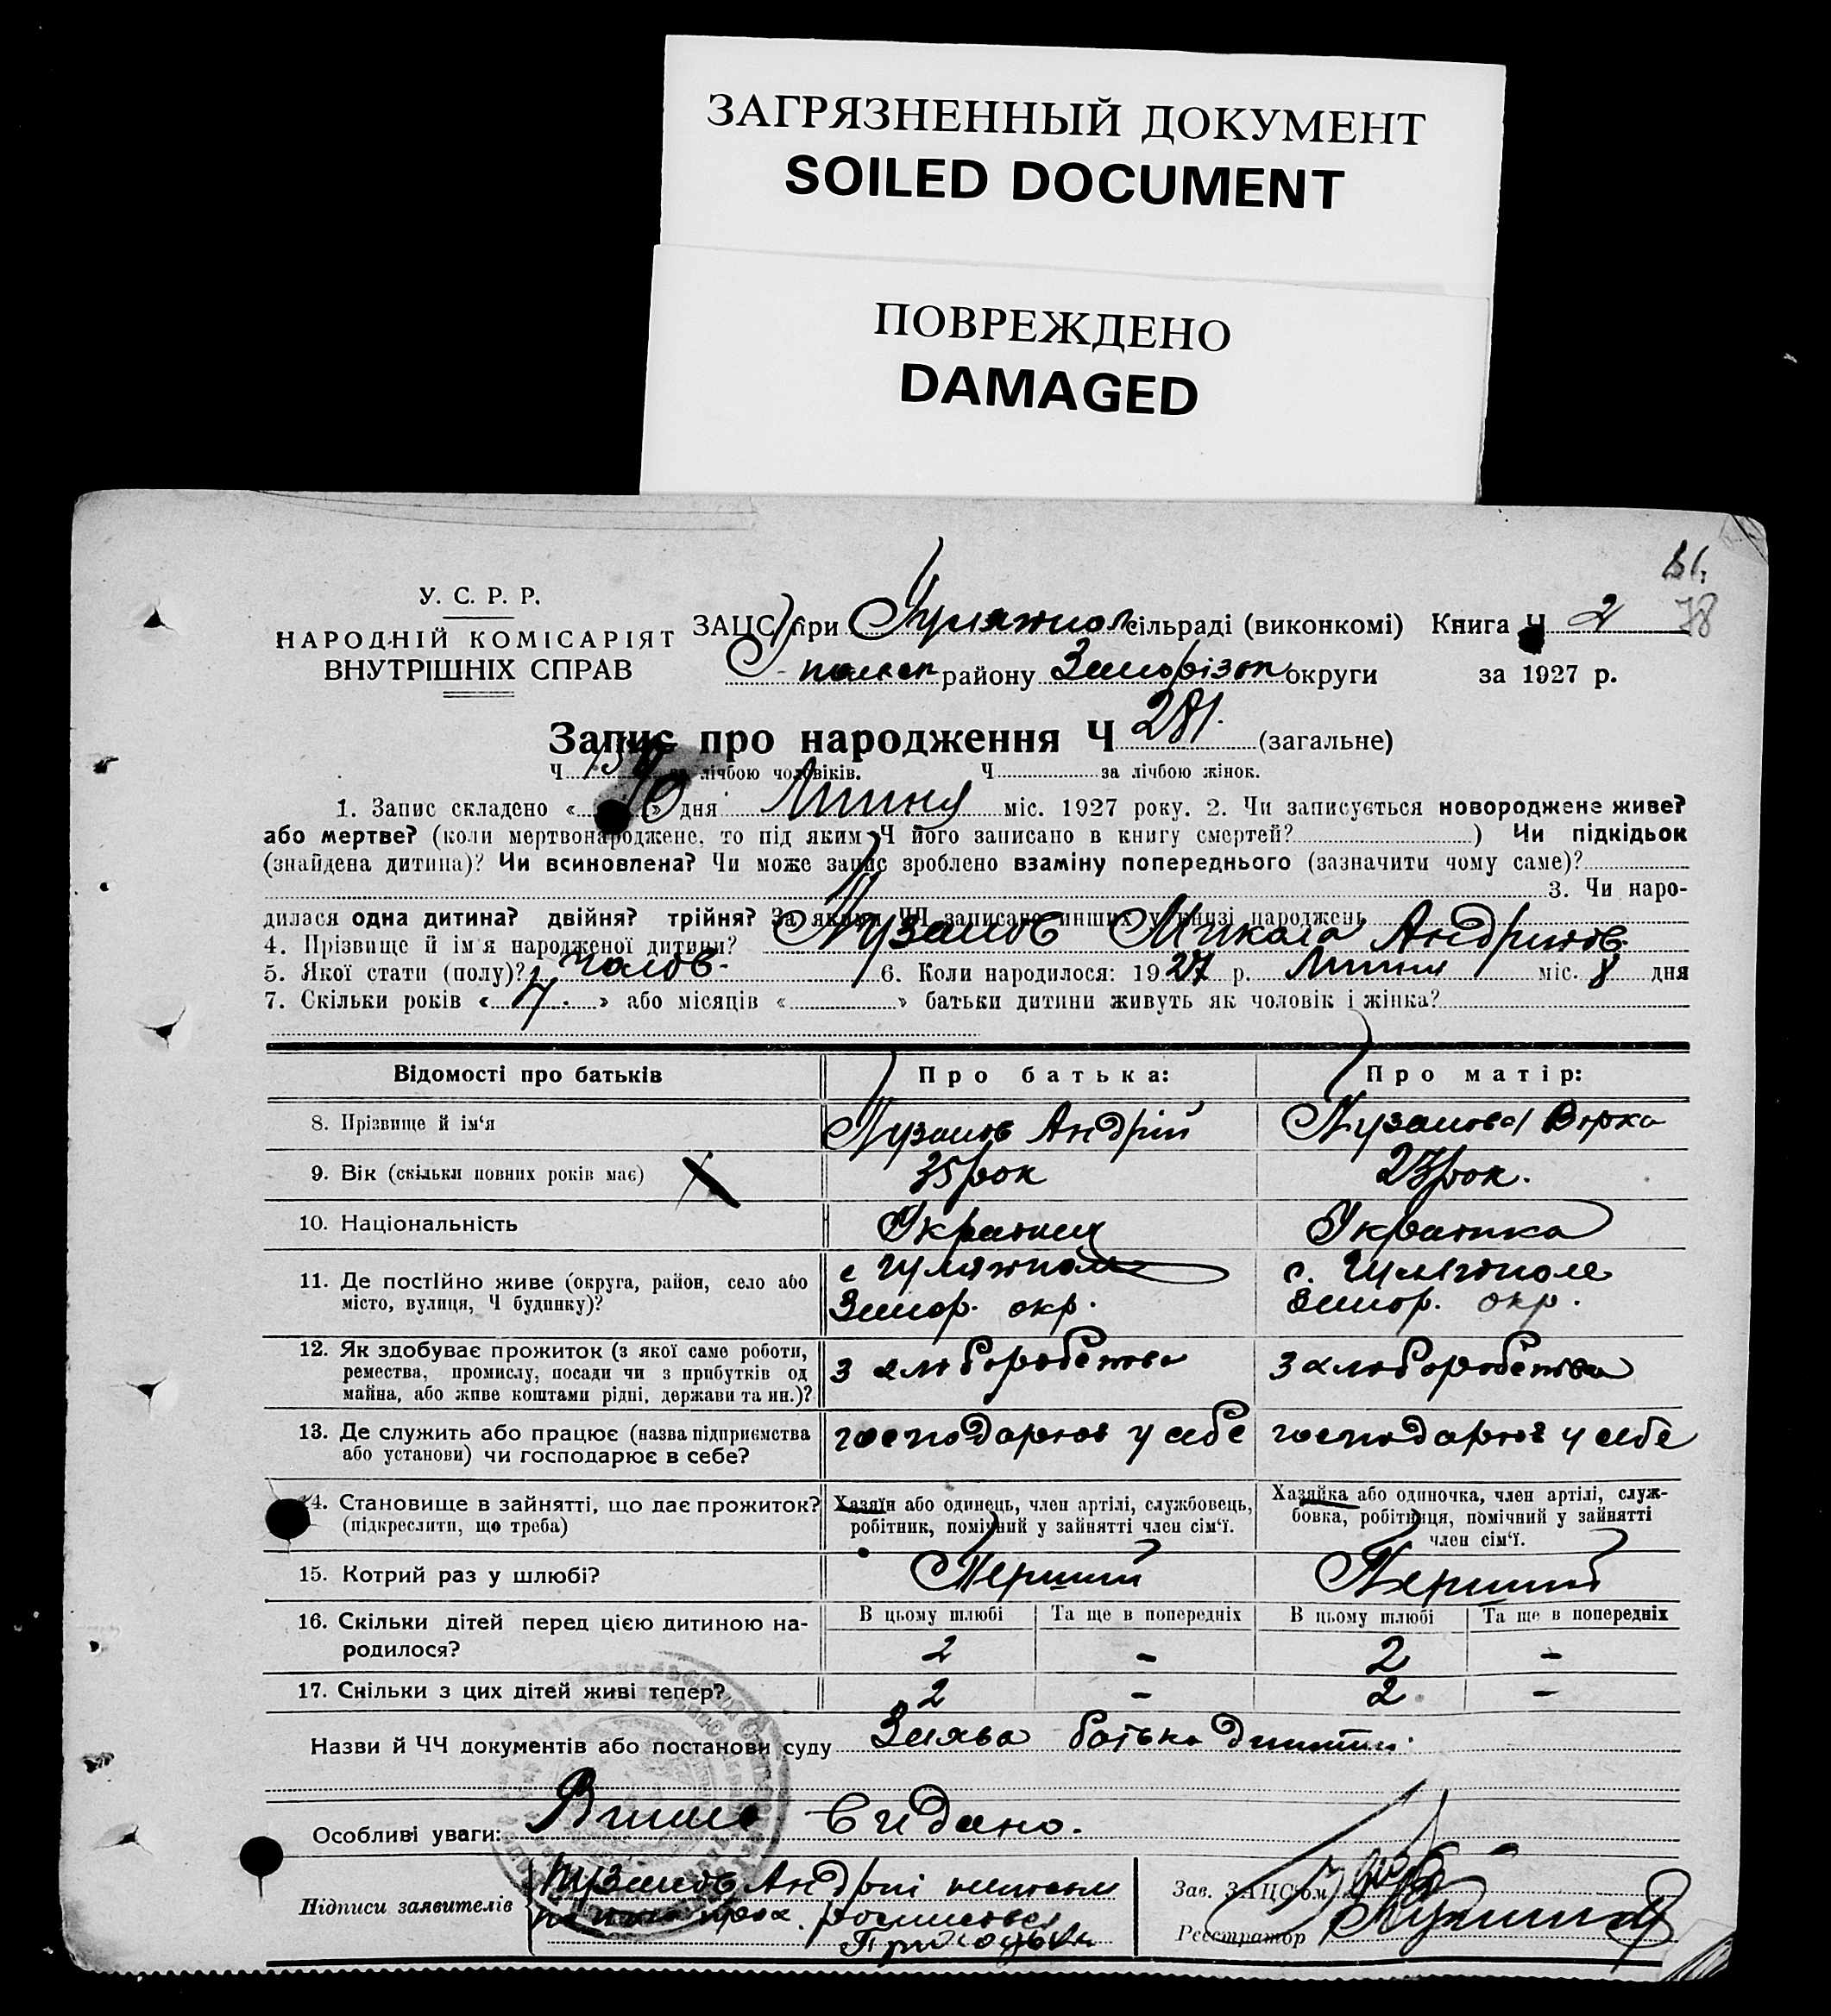 ЗАГРЯЗНЕННЫЙ ДОКУМЕНТ
SOILED DOCUMENT
ПОВРЕЖДЕНО
DAMAGED
81.
78
У. С. Р. Р.
НАРОДНІЙ КОМІСАРІЯТ
ВНУТРІШНІХ СПРАВ
ЗАЦС при Гуляжпол сільраді (виконкомі) Книга Ч 2
району округи за 1927 р.
Запис про народження Ч 281. (загальне)
Ч за лічбою чоловіків. Ч за лічбою жінок.
1. Запис складено « 10 » дня Липня міс. 1927 року. 2. Чи записується новороджене живе?
або мертве? (коли мертвонароджене, то під яким Ч його записано в книгу смертей? ) Чи підкідьок
(знайдена дитина)? Чи всиновлена? Чи може запис зроблено взаміну попереднього (зазначити чому саме)?
3. Чи наро-
дилася одна дитина? двійня? трійня? За якими ЧЧ записано инших у книзі народжень
4. Прізвище й ім'я народженої дитини? Пузанов Микола Андріїов.
5. Якої стати (полу)? чолов. 6. Коли народилося: 1927 р. Липня міс. 8 дня
7. Скільки років « 7. » або місяців « » батьки дитини живуть як чоловік і жінка?
Відомості про батьків Про батька: Про матір:
8. Прізвище й ім'я Пузанов Андрій Пузанова Вірка
9. Вік (скільки повних років має) 35 рок 23 рок.
10. Національність Українец Українка
11. Де постійно живе (округа, район, село або с Гуляжполе с. Гуляжполе
місто, вулиця, Ч будинку)? Запор. окр. Запор. окр.
12. Як здобуває прожиток (з якої саме роботи,
ремества, промислу, посади чи з прибутків од з хлюборобства з хлюборобства
майна, або живе коштами рідні, держави та ин.)?
13. Де служить або працює (назва підприємства господарює у себе господарює у себе
або установи) чи господарює в себе?
14. Становище в зайнятті, що дає прожиток? Хазяїн або одинець, член артілі, службовець, Хазяйка або одиночка, член артілі, служ-
(підкреслити, що треба) робітник, помічний у зайнятті член сім'ї. бовка, робітниця, помічний у зайнятті
член сім'ї.
15. Котрий раз у шлюбі? Перший Перший
16. Скільки дітей перед цією дитиною на- В цьому шлюбі Та ще в попередніх В цьому шлюбі Та ще в попередніх
родилося? 2 - 2 -
17. Скільки з цих дітей живі тепер? 2 - 2 -
Назви й ЧЧ документів або постанови суду Заява батька дитини.
Особливі уваги: Видано.
Підписи заявителів Пузанов Андрій
Зав. ЗАЦС'ом
Реєстратор